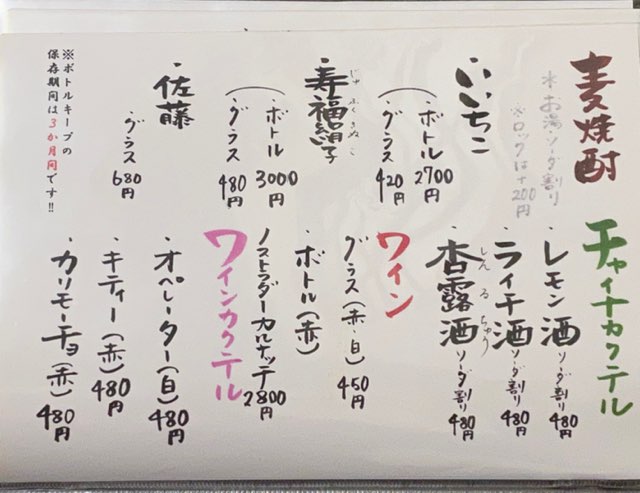 麦焼酎
水・お湯・ソーダ割り
※ロックは+200円
・いいちこ
ボトル 2700円
グラス 420円
じゅふくきぬこ
・寿福絹子
ボトル 3000円
グラス 480円
・佐藤
グラス 680円
※ボトルキープの
保存期間は3か月間です!!
チャイナカクテル
・レモン酒 ソーダ割り 480円
・ライチ酒 ソーダ割り 480円
しんるちゅう
・杏露酒 ソーダ割り 480円
ワイン
・グラス(赤・白) 450円
・ボトル(赤)
ノストラダーカルナッチ 2800円
ワインカクテル
・オペレーター(白) 480円
・キティー(赤) 480円
・カリモーチョ(赤) 480円